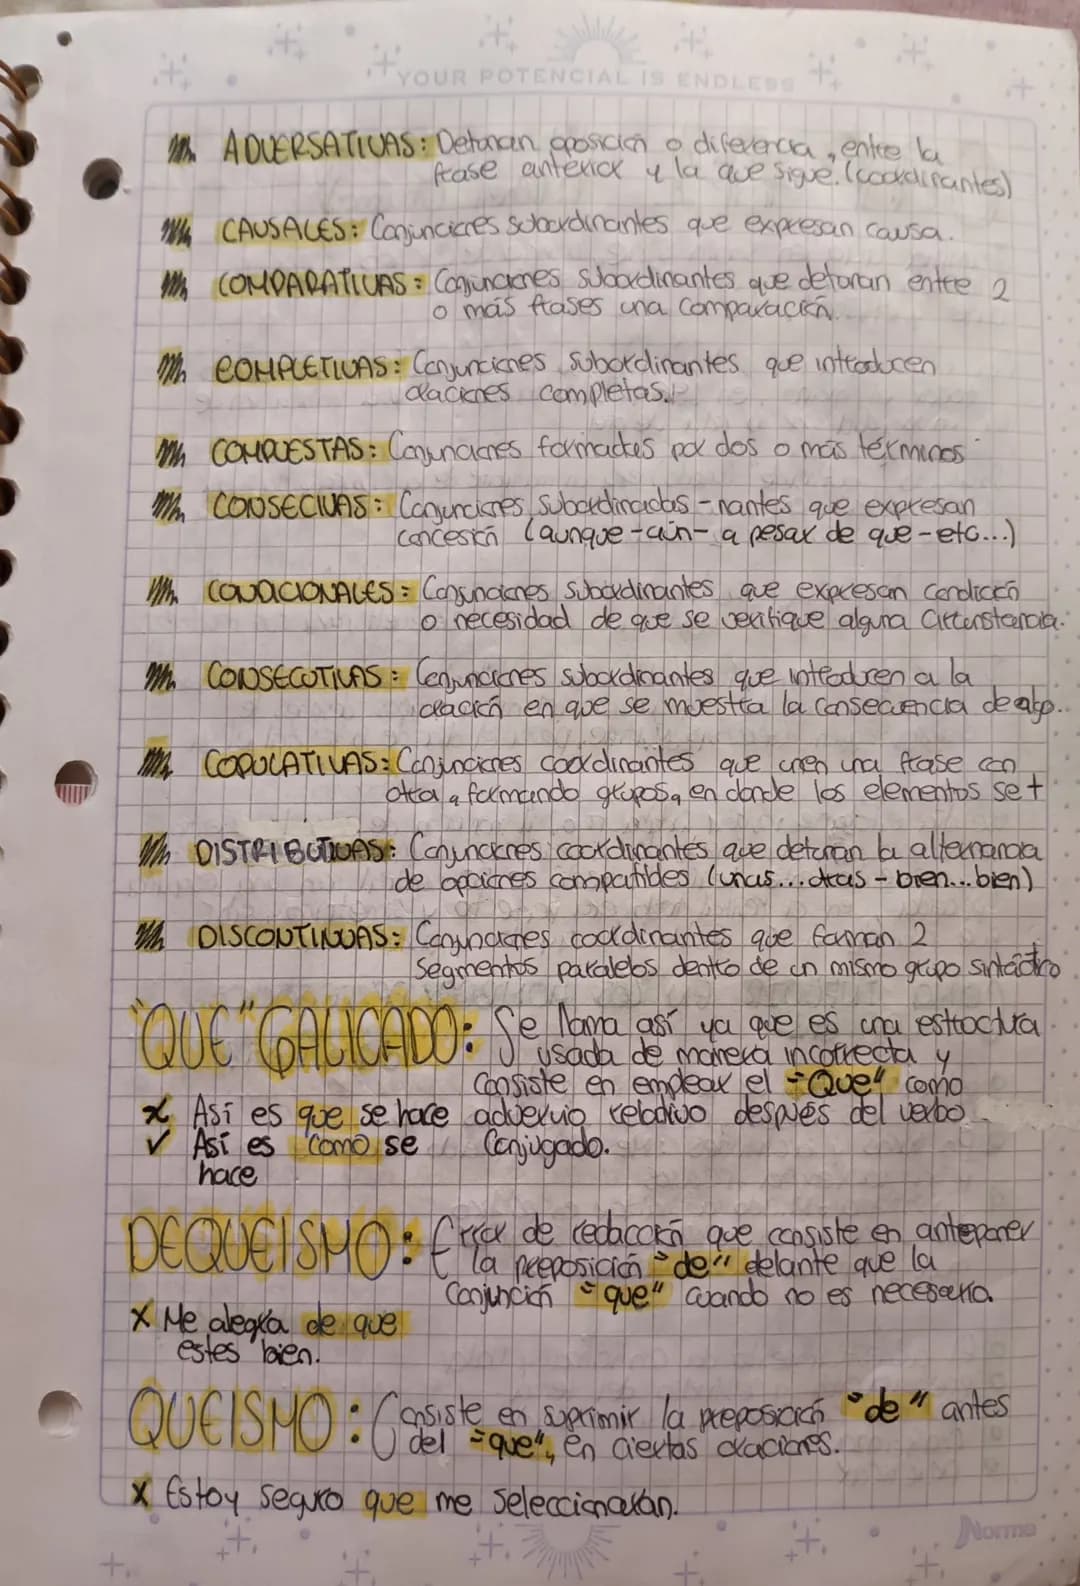 YOUR POTENCIAL IS ENDLESS
ADVERSATIVAS: Detonan oposición o diferencia, entre la
frase anterior y la que sigue. (coordinantes)
CAUSALES: Conjunciones subordinantes que expresan causa.
COMPARATIVAS: Conjunciones subordinantes que detonan entre 2
o más frases una comparación.
COMPLETIVAS: Conjunciones subordinantes que introducen
oraciones completas.
COMPUESTAS: Conjunciones formadas por dos o más términos
CONSECIVAS: Conjunciones subordinadas-nantes que expresan
concesión (aunque-aún- a pesar de que-etc...)
CONDICIONALES: Conjunciones subordinantes que expresan condición
o necesidad de que se verifique alguna circunstancia.
CONSECUTIVAS: Conjunciones subordinantes que introducen a la
oración en que se muestra la consecuencia de algo.
COPULATIVAS: Conjunciones coordinantes que unen una frase con
otra, formando grupos, en donde los elementos se +
DISTRIBUTIVAS: Conjunciones coordinantes que detonan la alternancia
de opciones compatibles (unas...otras - bien...bien)
DISCONTINUAS: Conjunciones coordinantes que forman 2
segmentos paralelos dentro de un mismo grupo sintáctico
"QUE" GALICADO: Se llama así ya que es una estructura
usada de manera incorrecta y
consiste en emplear el "Que" como
x Así es que se hace adverbio relativo después del verbo
✓ Así es como se conjugado.
hace
DEQUEISMO: Error de redacción que consiste en anteponer
la preposición "de" delante que la
conjunción "que" cuando no es necesario.
X Me alegra de que
estes bien.
QUEISMO: Consiste en suprimir la preposición "de" antes
del "que", en ciertas oraciones.
X Estoy seguro que me seleccionarán.
Norma